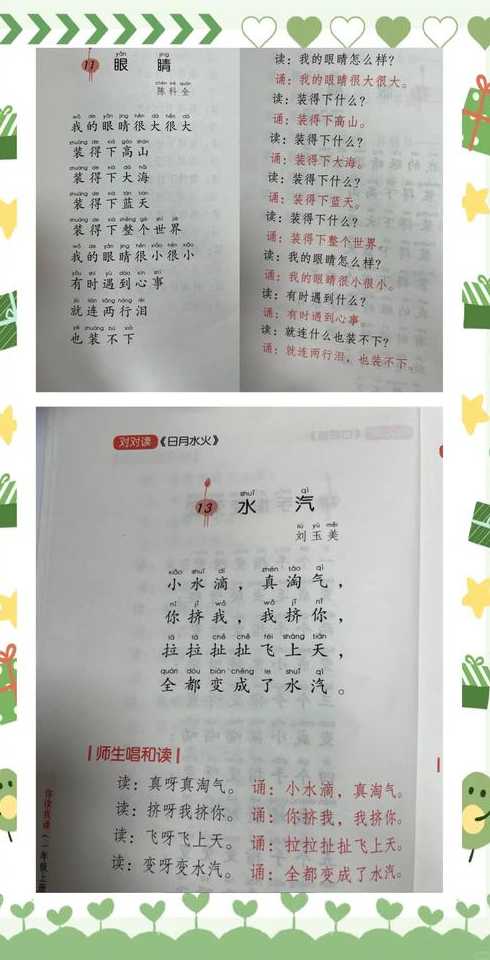 11 眼睛
yǎn jing
chén kē quán
陈科全
wǒ de yǎn jing hěn dà hěn dà
我的眼睛很大很大
zhuāng de xià gāo shān
装得下高山
zhuāng de xià dà hǎi
装得下大海
zhuāng de xià lán tiān
装得下蓝天
zhuāng de xià zhěng gè shì jiè
装得下整个世界
wǒ de yǎn jing hěn xiǎo hěn xiǎo
我的眼睛很小很小
yǒu shí yù dào xīn shì
有时遇到心事
jiù lián liǎng háng lèi
就连两行泪
yě zhuāng bú xià
也装不下
读：我的眼睛怎么样？
诵：我的眼睛很大很大。
读：装得下什么？
诵：装得下高山。
读：装得下什么？
诵：装得下大海。
读：装得下什么？
诵：装得下蓝天。
读：装得下什么？
诵：装得下整个世界。
读：我的眼睛怎么样？
诵：我的眼睛很小很小。
读：有时遇到什么？
诵：有时遇到心事。
读：就连什么也装不下？
诵：就连两行泪，也装不下。
对对读《日月水火》
shuǐ qì
13 水汽
liú yù měi
刘玉美
xiǎo shuǐ dī zhēn táo qì
小水滴，真淘气，
nǐ jǐ wǒ wǒ jǐ nǐ
你挤我，我挤你，
lā lā chě chě fēi shàng tiān
拉拉扯扯飞上天，
quán dōu biàn chéng le shuǐ qì
全都变成了水汽。
师生唱和读
读：真呀真淘气。 诵：小水滴，真淘气。
读：挤呀我挤你。 诵：你挤我，我挤你。
读：飞呀飞上天。 诵：拉拉扯扯飞上天。
读：变呀变水汽。 诵：全都变成了水汽。
你读我诵（一年级上